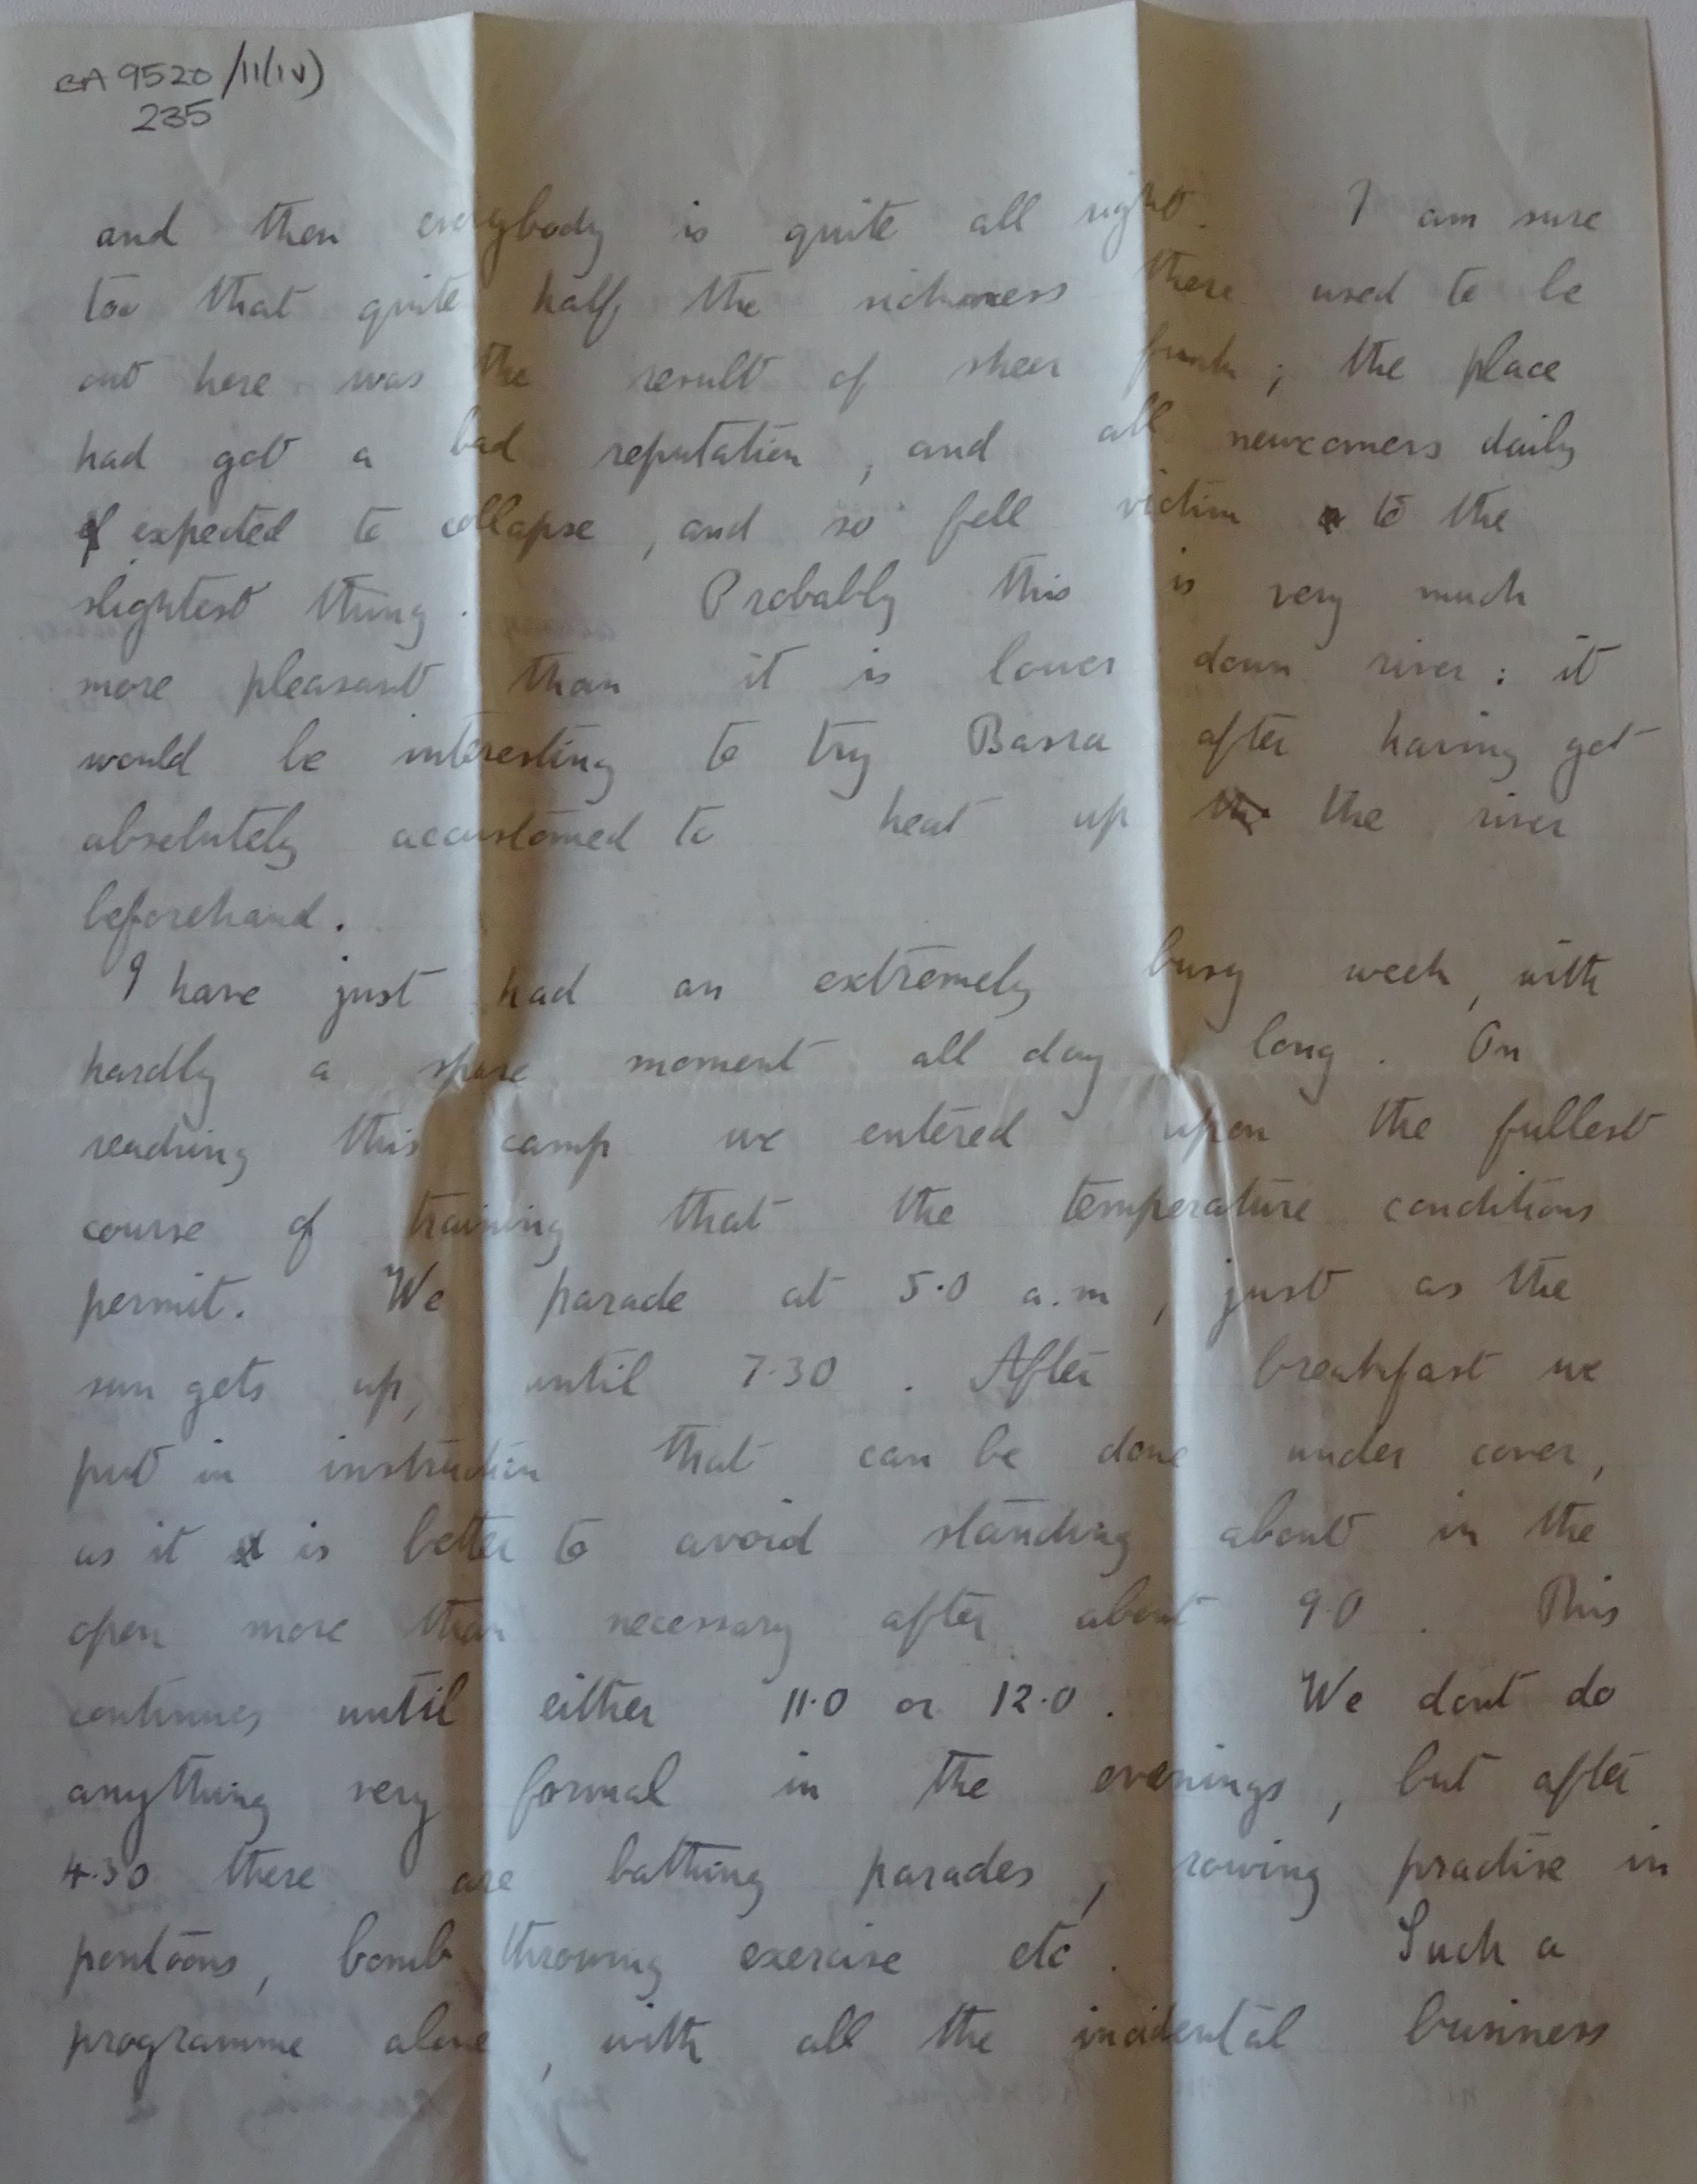 BA 9520/11(iv)
235
and then everybody is quite all right. I am sure
too that quite half the sickness there used to be
out here was the result of sheer funk; the place
had got a bad reputation, and all newcomers daily
expected to collapse, and so fell victim to the
slightest thing. Probably this is very much
more pleasant than it is lower down river: it
would be interesting to try Basra after having got
absolutely accustomed to heat up the river
beforehand.
I have just had an extremely busy week, with
hardly a spare moment all day long. On
reaching this camp we entered upon the fullest
course of training that the temperature conditions
permit. We parade at 5.0 a.m, just as the
sun gets up, until 7.30. After breakfast we
put in instruction that can be done under cover,
as it is better to avoid standing about in the
open more than necessary after about 9.0. This
continues until either 11.0 or 12.0. We dont do
anything very formal in the evenings, but after
4.30 there are bathing parades, rowing practise in
pontoons, bomb throwing exercise etc. Such a
programme alone, with all the incidental business